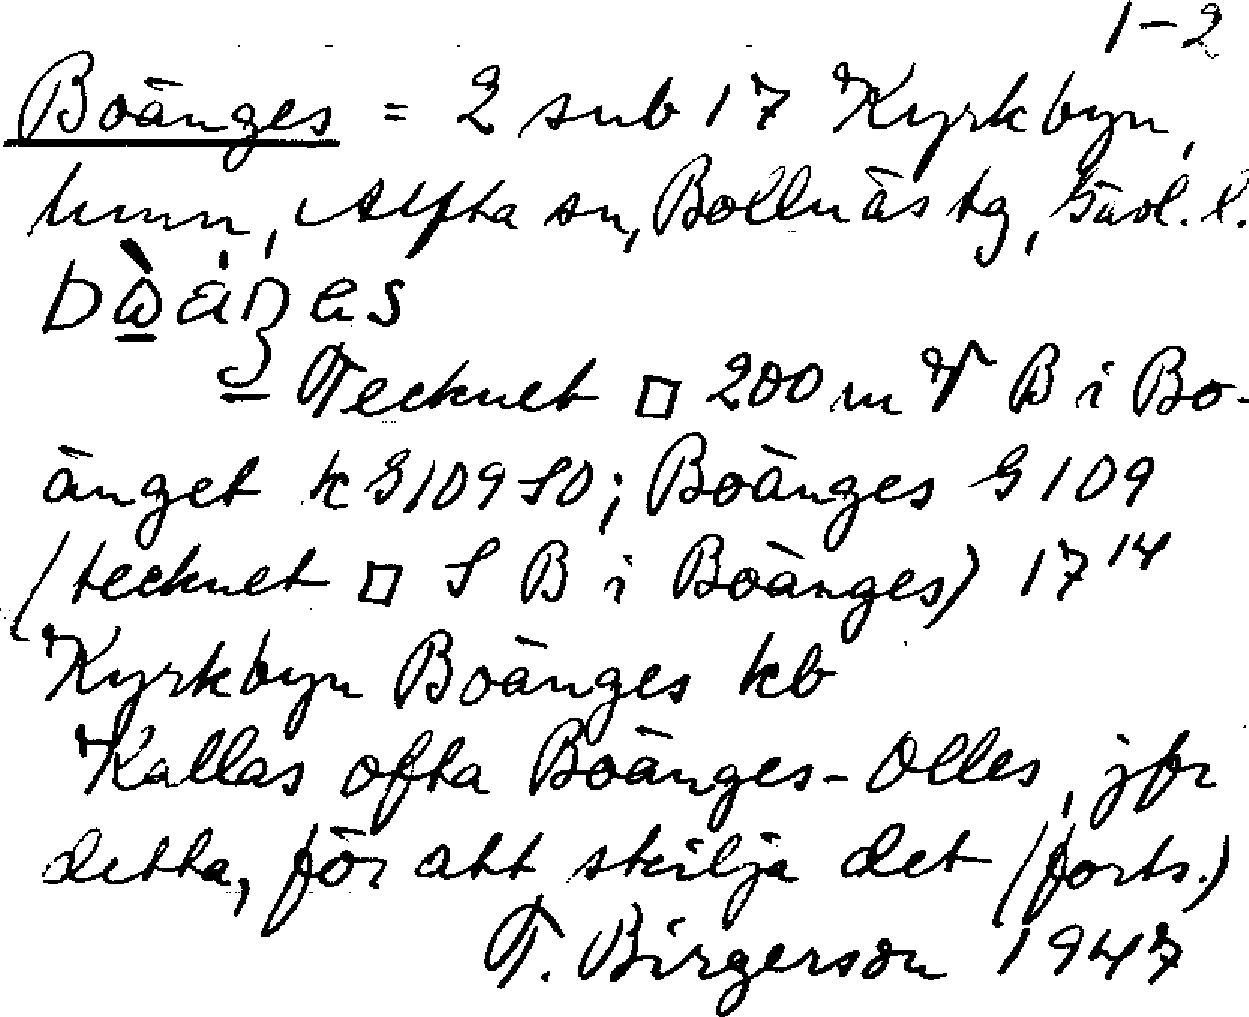 1-2
Boänges = 2 sub 17 Kyrkbyn,
hmn, Alfta sn, Bollnäs tg, Gävl. l.
Tecknet □ 200 m V B i Bo-
änget k G 109 SO; Boänges G 109
(tecknet □ S B i Boänges) 17¹⁴
Kyrkbyn Boänges kb
Kallas ofta Boänges-Olles, jfr
detta, för att skilja det (forts.)
T. Birgerson 1947